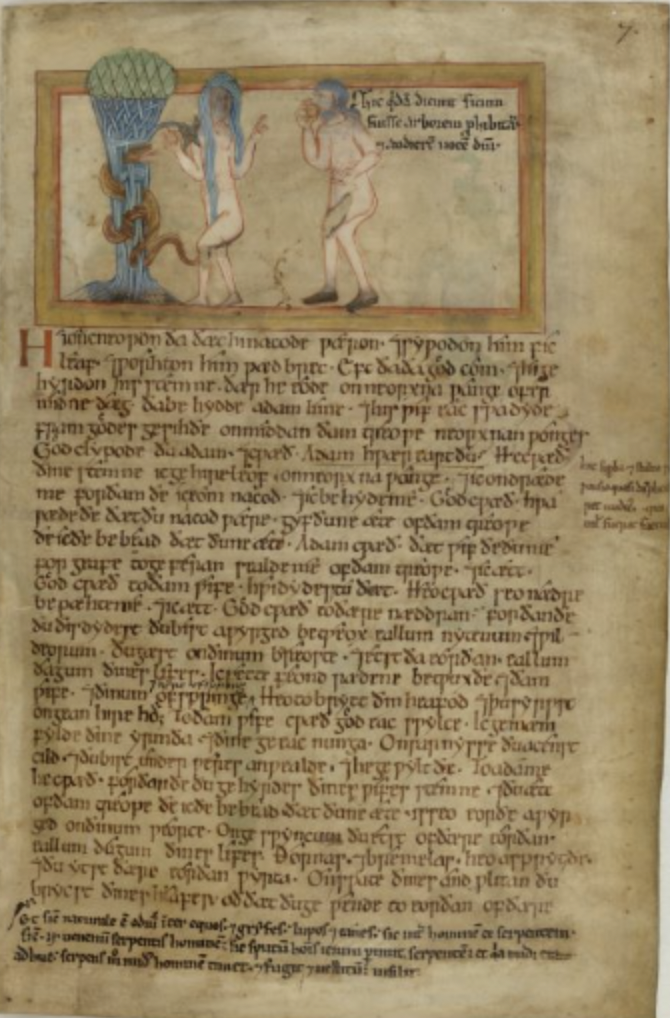 hic qdā dicunt ficum
fuisse arborem
⁊ audierē uocē dnī
7
Hi oncneowon ða ðæt hi nacode wæron · ⁊ sywodon him fic
leaf · ⁊ worhton him wædbrec · Eft ða ða god cōm · ⁊ hi ge
hyrdon his stemne · ðær he eode on neorxna wange ofer
midne dæg · ða behydde adam hine · ⁊ his wif eac swa dyde
fram godes gesihðe onmiddan ðam treowe neorxnan wonges
God clypode ða adam · ⁊ cwæð · Adam hwær eart ðu · He cwæð
ðine stemne ic gehire leof · on neorxna wange · ⁊ ic ondræde
me forðam ðe ic eom nacod · ⁊ ic behyde me · God cwæð · hwa
sæde ðe ðæt ðu nacod wære · gyf ðu ne æte of ðam treowe
ðe ic ðe bebead ðæt ðu ne æte · Adam cwæð · ðæt wif ðe ðu me
forgeafe to geferan sealde me of ðam treowe · ⁊ ic ætt ·
God cwæð to ðam wife · hwi dydestu ðæt · Heo cwæð seo nædre
bepæhte me · ⁊ ic ætt · God cwæð to ðære næddran · forðan ðe
ðu ðis dydest ðu bist awyrged betweox eallum nytenum ⁊ wil
deorum · ðu gæst on ðinum breoste · ⁊ etst ða eorðan · eallum
dagum ðines lifes · Ic sette feondrædene betwux ðe ⁊ ðam
wife · ⁊ ðinum ofspringe · Heo tobrytt ðin heafod ⁊ ðu syrwst
ongean hire hó; To ðam wife cwæð god eac swylce · Ic gemæni
fylde ðine yrmða · ⁊ ðine geeacnunga · On sarnysse ðu acenst
cild · ⁊ ðu bist under weres anwealde · ⁊ he gewylt ðe · To adame
he cwæð · forðan ðe ðu gehyrdes ðines wifes stemne · ⁊ ðu æte
of ðam treowe ðe ic ðe bebead ðæt ðu ne æte · is seo eorðe awyr
ged on ðinum weorce · On geswyncum ðu ætst of ðære eorðan ·
eallum dagum ðines lifes · Ðornas · ⁊ bremelas · heo asprytt ðe
⁊ ðu ytst ðære eorðan wyrta · On swate ðines andwlitan ðu
brycst ðines hlafes oð ðæt ðu gewende to eorðan of ðære
Et sic naturale ē odiū int̄ equos · ⁊ grifes · lupos ⁊ canes · sic int̄ hominē et serpentem ·
uenenū serpentis hominē · sic sputū hōis serpentē
adhuc · serpens nudū hominē timet · ⁊ fugit ⁊ uestitū